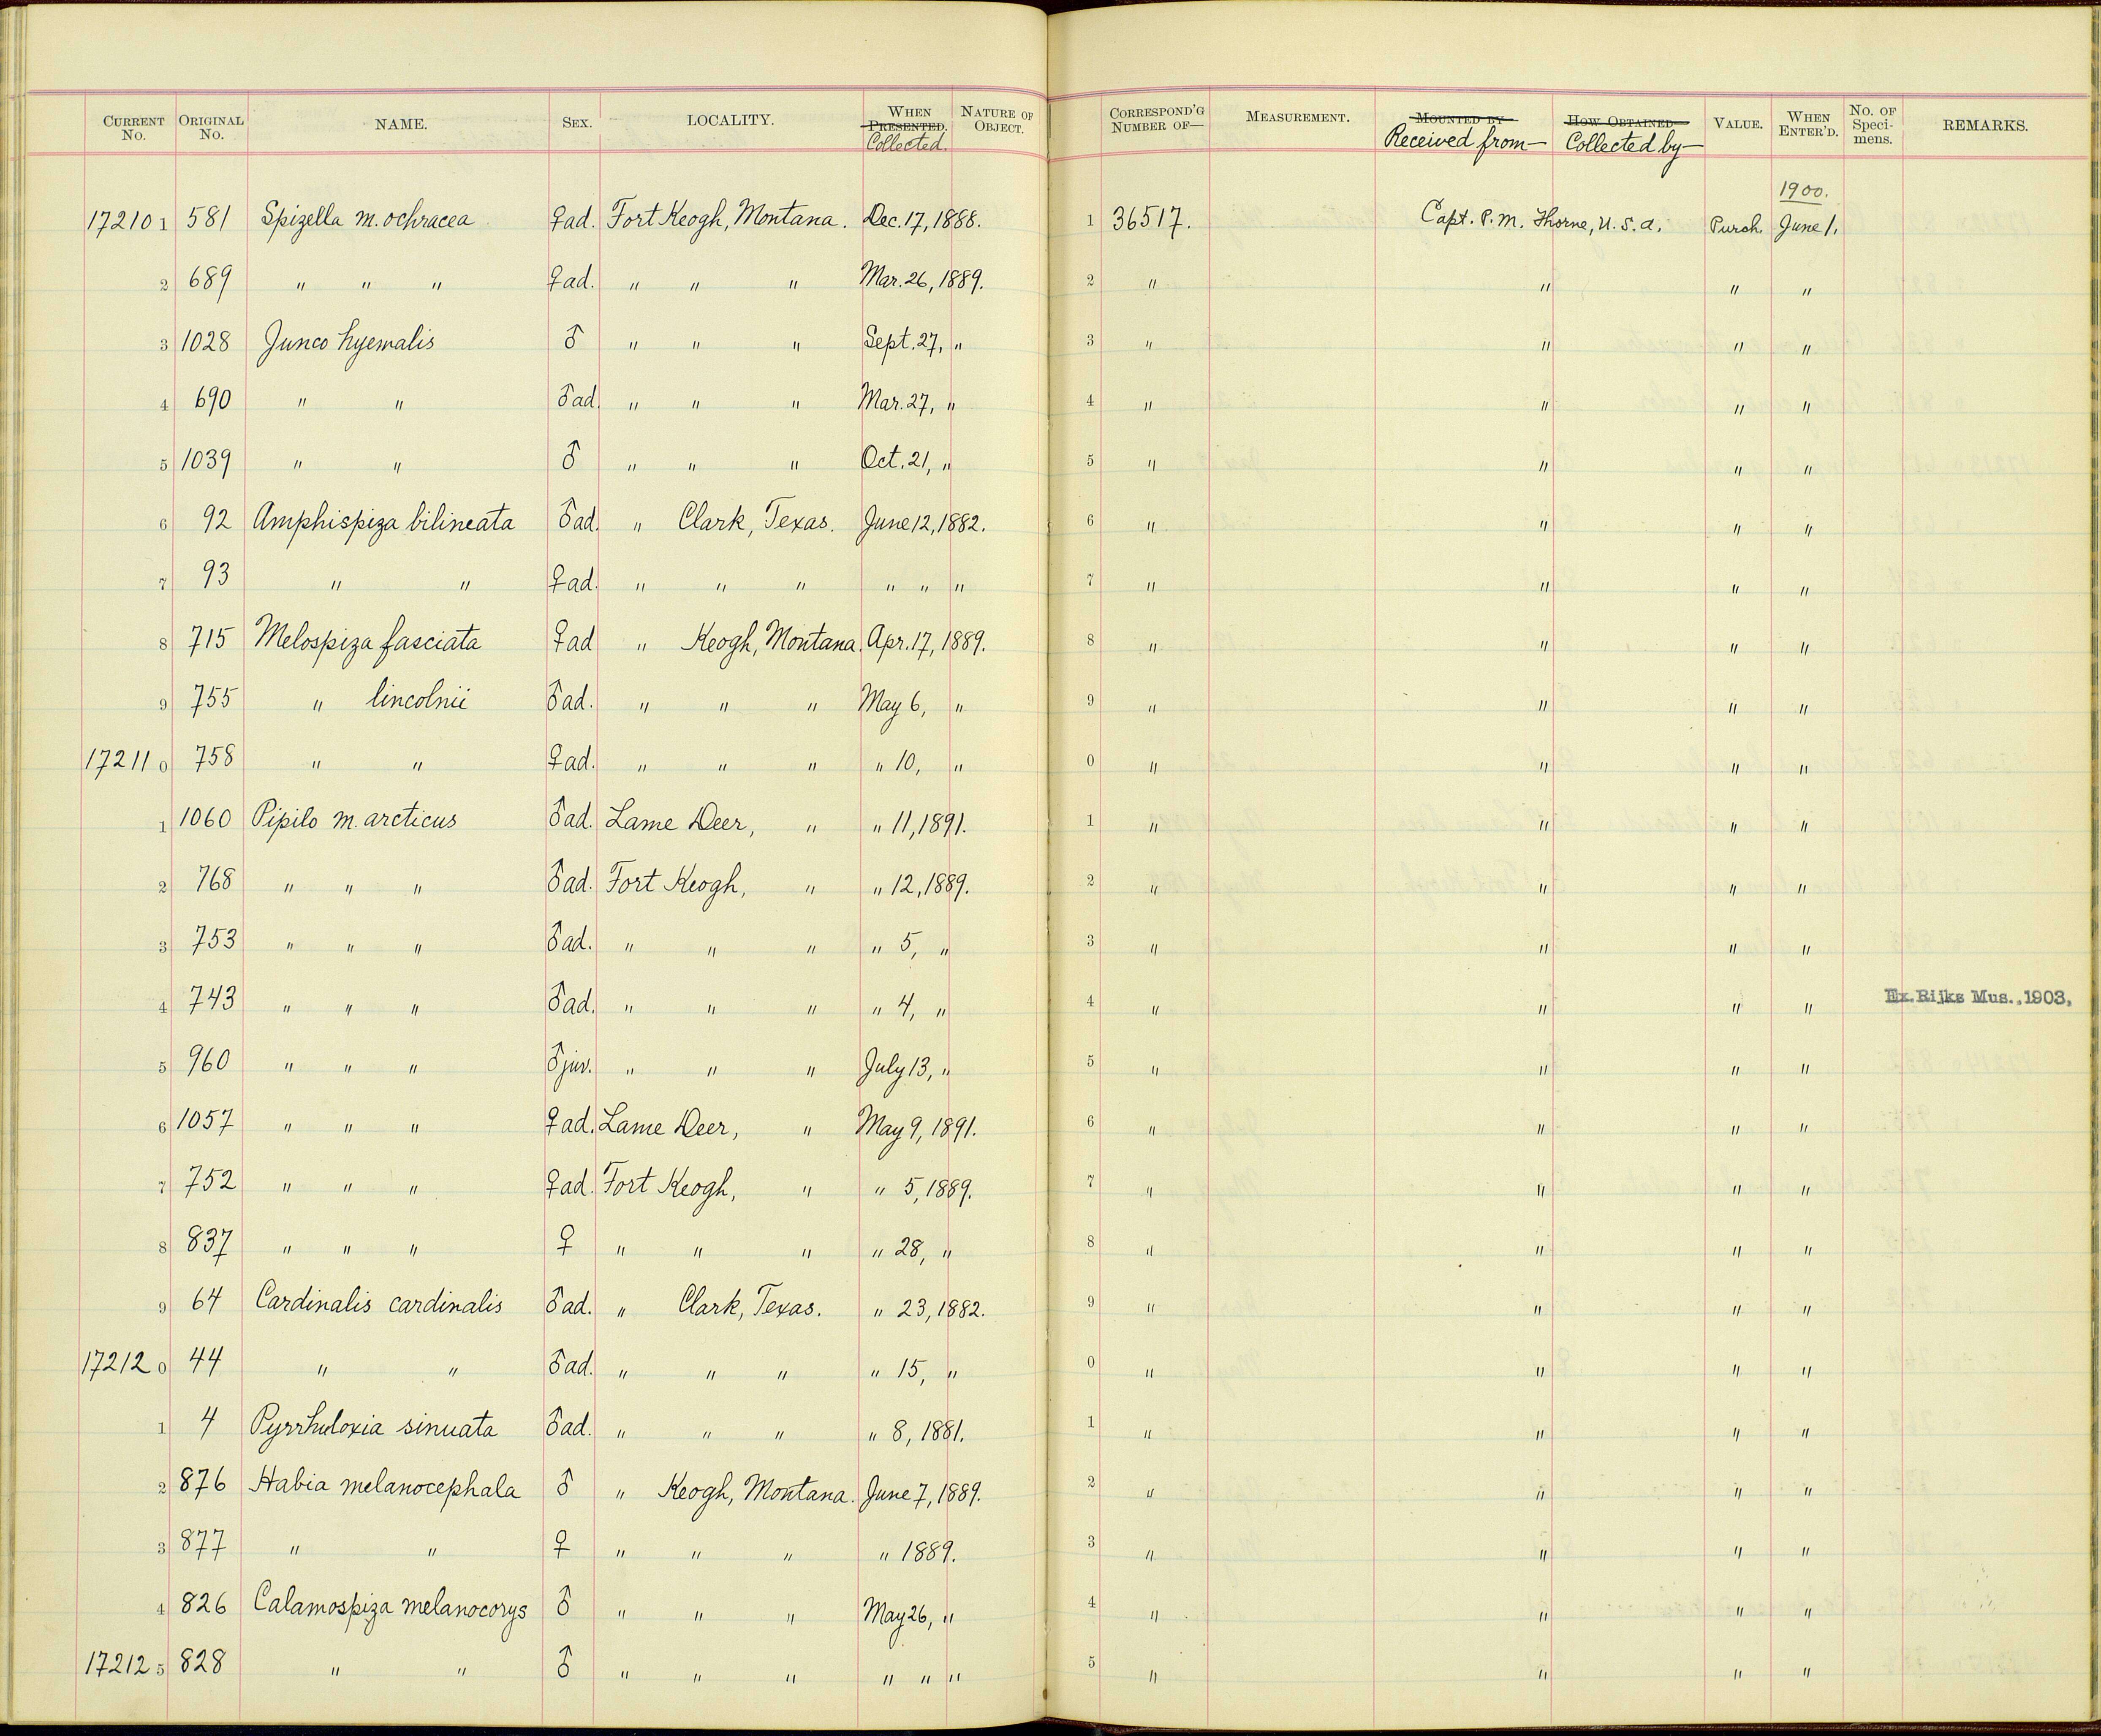 CURRENT No. ORIGINAL No. NAME. SEX. LOCALITY. WHEN PRESENTED. Collected. NATURE OF OBJECT. CORRESPOND'G NUMBER OF— MEASUREMENT. MOUNTED BY Received from— HOW OBTAINED Collected by— VALUE. WHEN ENTER'D. No. OF Specimens. REMARKS.
1900.
17210 1 581 Spizella m. ochracea ♀ad. Fort Keogh, Montana. Dec. 17, 1888. 1 36517. Capt. P. M. Thorne, U. S. A. Purch. June 1.
2 689 " " " ♀ad. " " " Mar. 26, 1889. 2 " " " "
3 1028 Junco hyemalis ♂ " " " Sept. 27, " 3 " " " "
4 690 " " ♂ad. " " " Mar. 27, " 4 " " " "
5 1039 " " ♂ " " " Oct. 21, " 5 " " " "
6 92 Amphispiza bilineata ♂ad. " Clark, Texas. June 12, 1882. 6 " " " "
7 93 " " ♀ad. " " " " " " 7 " " " "
8 715 Melospiza fasciata ♀ad " Keogh, Montana. Apr. 17, 1889. 8 " " " "
9 755 " lincolnii ♂ad. " " " May 6, " 9 " " " "
17211 0 758 " " ♀ad. " " " " 10, " 0 " " " "
1 1060 Pipilo m. arcticus ♂ad. Lame Deer, " " 11, 1891. 1 " " " "
2 768 " " " ♂ad. Fort Keogh, " " 12, 1889. 2 " " " "
3 753 " " " ♂ad. " " " " 5, " 3 " " " "
4 743 " " " ♂ad. " " " " 4, " 4 " " " " Ex. Rijks Mus., 1903.
5 960 " " " ♂juv. " " " July 13, " 5 " " " "
6 1057 " " " ♀ad. Lame Deer, " May 9, 1891. 6 " " " "
7 752 " " " ♀ad. Fort Keogh, " " 5, 1889. 7 " " " "
8 837 " " " ♀ " " " " 28, " 8 " " " "
9 64 Cardinalis cardinalis ♂ad. " Clark, Texas. " 23, 1882. 9 " " " "
17212 0 44 " " ♂ad. " " " " 15, " 0 " " " "
1 4 Pyrrhuloxia sinuata ♂ad. " " " " 8, 1881. 1 " " " "
2 876 Habia melanocephala ♂ " Keogh, Montana. June 7, 1889. 2 " " " "
3 877 " " ♀ " " " " 1889. 3 " " " "
4 826 Calamospiza melanocorys ♂ " " " May 26, " 4 " " " "
17212 5 828 " " ♂ " " " " " " 5 " " " "